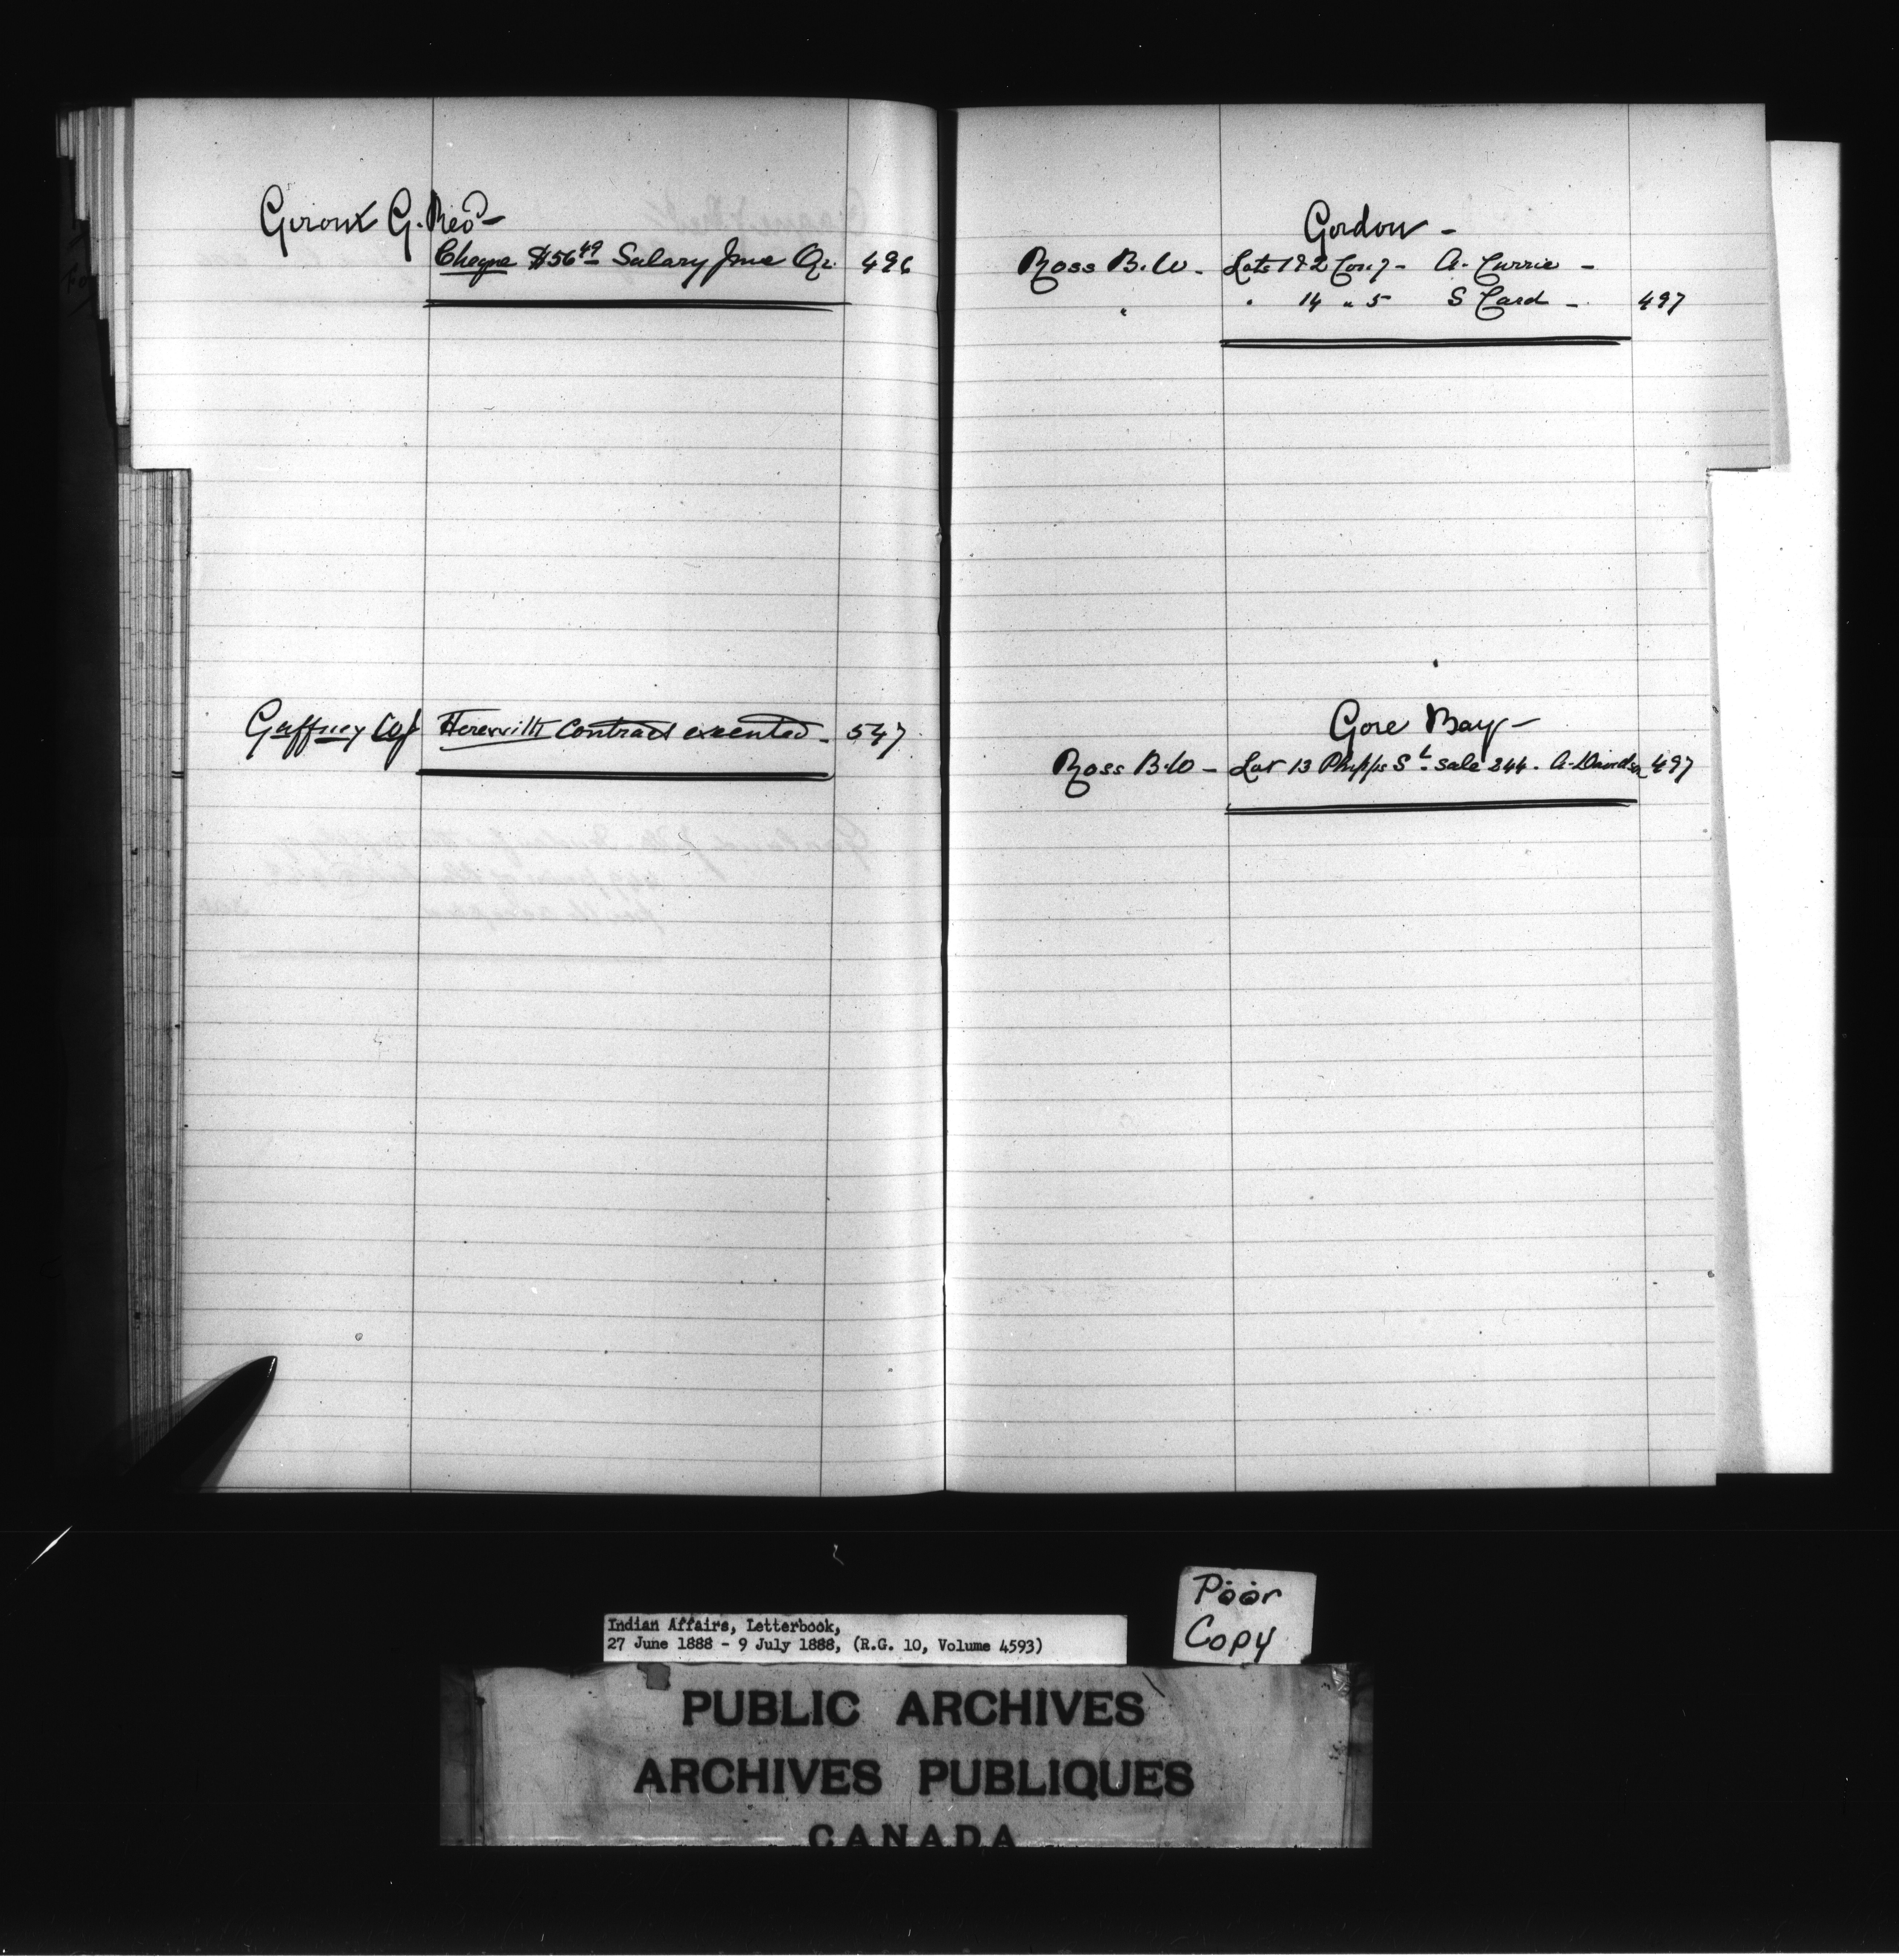 Giroux G. Revd -
Cheque $56 49 Salary June Qr. 496
Gaffney Herewith Contract executed - 547
Gordon -
Ross B.W - Lots 1 & 2 Con 7 - A. Currie -
" " 14 " 5 S Card - 497
Gore Bay -
Ross B.W - Lot 13 Phipps St. sale 244. A. Davidson 497
Poor
Copy
Indian Affairs, Letterbook,
27 June 1888 - 9 July 1888, (R.G. 10, Volume 4593)
PUBLIC ARCHIVES
ARCHIVES PUBLIQUES
CANADA